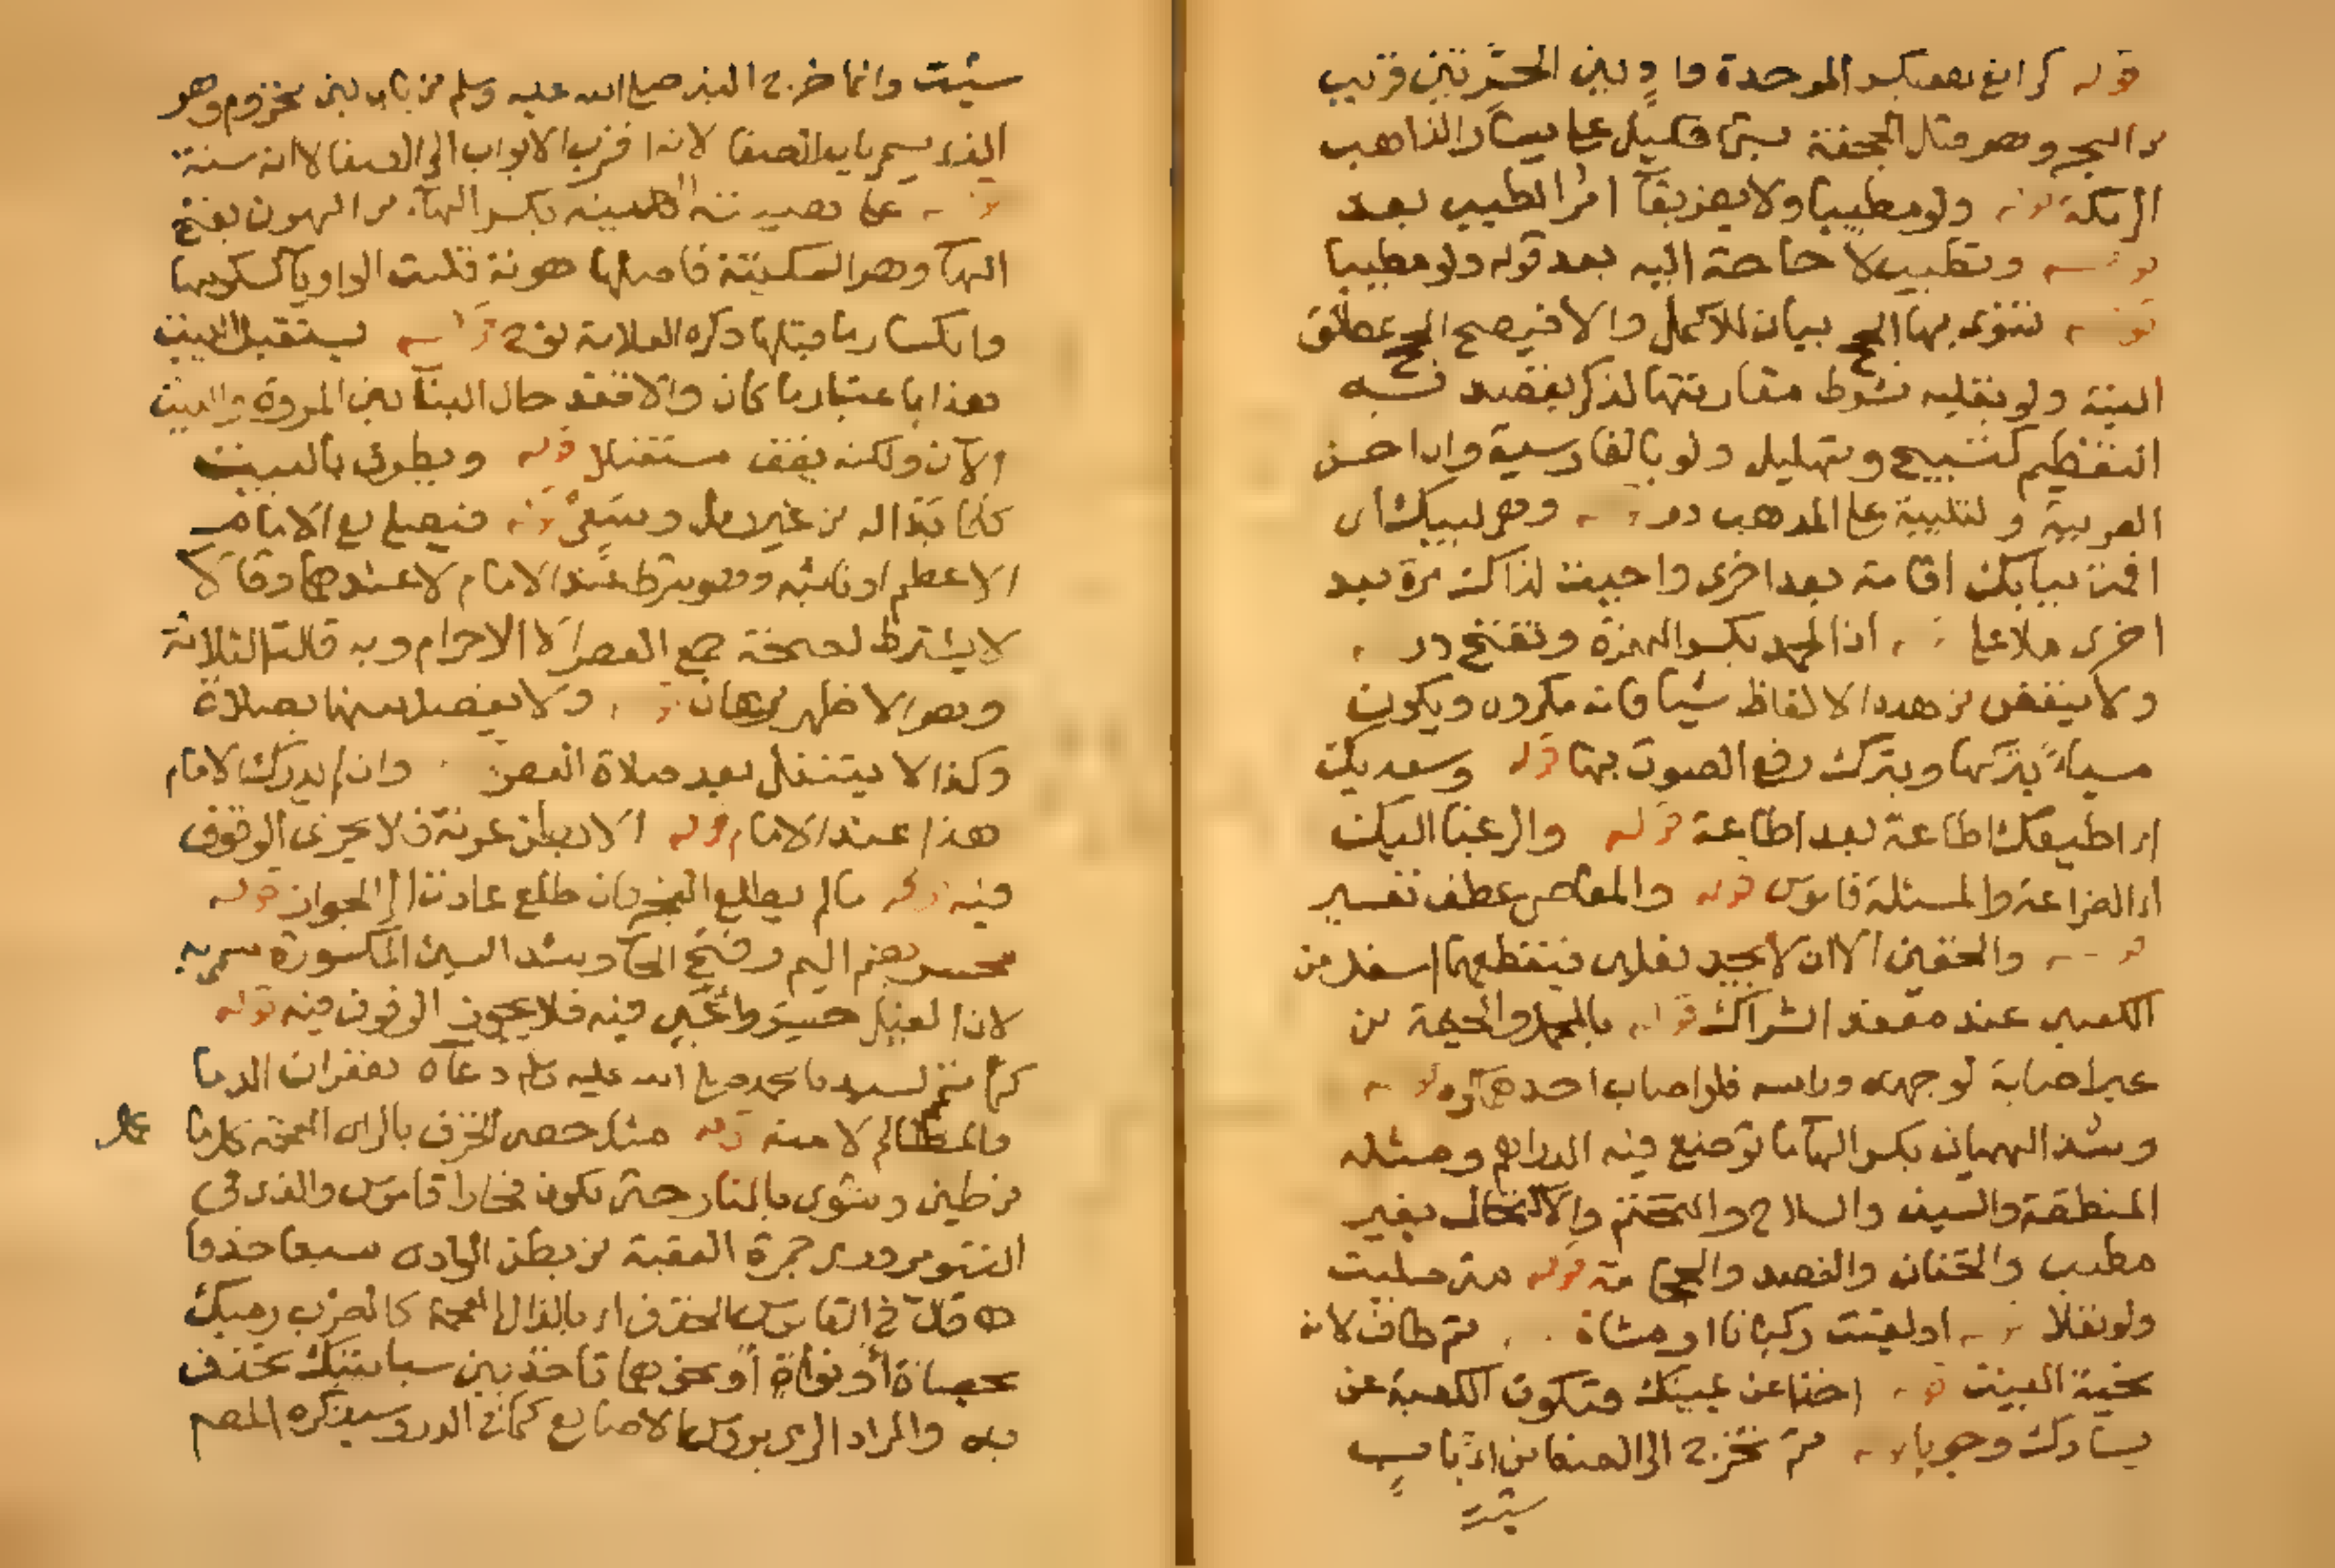 قوله كرابغ بكسر الموحدة واد بين الحرمين قريب
من البحر وهو قبل الجحفة بشئ قليل على يسار الذاهب
الى مكة قوله ولو مطيبا ولا يضر بقاء اثر الطيب بعد
قوله وتطيب لا حاجة اليه بعد قوله ولو مطيبا
قوله تنوى بها الحج بيان للاكمل والا فيصح الحج بمطلق
النية ولو بقلبه بشرط مقارنتها لذكر يقصد به
التعظيم كتسبيح وتهليل ولو بالفارسية وان احسن
العربية والتلبية على المذهب در قوله وهى لبيك اى
اقمت ببابك اقامة بعد اخرى واجبت نداك مرة بعد
اخرى ملا على قوله ان الحمد بكسر الهمزة وتفتح در
ولا ينقص من هذه الالفاظ شيا فانه مكروه ويكون
مسيأ بتركها وبترك رفع الصوت بها قوله وسعديك
اى اطيعك اطاعة بعد اطاعة قوله والرغبا اليك
اى الضراعة والمسئلة قاموس قوله والمعاصى عطف تفسير
قوله والخفين الا ان لا يجد نعلين فيقطعهما اسفل من
الكعبين عند معقد الشراك قوله بالمحمل والخيمة من
غير اصابة لوجهه وراسه فلو اصاب احدهما كره قوله
وشد الهميان بكسر الهاء ما توضع فيه الدراهم ومثله
المنطقة والسيف والسلاح والتختم والاكتحال بغير
مطيب والختان والفصد والحجامة قوله متى صليت
ولو نفلا قوله او لقيت ركبانا او مشاة ثم طاف لانه
تحية البيت قوله اخذا عن يمينك وتكون الكعبة عن
يسارك وجوبا قوله ثم تخرج الى الصفا من اى باب
شئت
شئت وانما خرج النبى صلى الله عليه وسلم من باب بنى مخزوم وهو
الذى يسمى باب الصفا لانه اقرب الابواب الى الصفا لا انه سنة
قوله على هينته الهينة بكسر الهاء من الهون بفتح
الهاء وهو السكينة فاصلها هونة قلبت الواو ياء لسكونها
وانكسار ما قبلها ذكره العلامة نوح قوله يستقبل البيت
هذا باعتبار ما كان والا فقد حال البناء بين المروة والبيت
الآن ولكنه يقف مستقبل قوله ويطوف بالبيت
كلما بدا له من غير رمل وسعى قوله فيصلى مع الامام
الاعظم او نائبه وهو شرط عند الامام لا عندهما وقالا
لا يشترط لصحة جمع العصر الا الاحرام وبه قالت الثلاثة
وهو الاظهر برهان قوله ولا يفصل بينهما بصلاة
وكذا لا يتنفل بعد صلاة العصر وان لم يدرك الامام
هذا عند الامام قوله الا بطن عرنة فلا يجزى الوقوف
فيه قوله ما لم يطلع الفجر فان طلع عادت الى الجواز قوله
محسر بضم الميم وفتح الحاء وشد السين المكسورة سمى به
لان الفيل حسر واعيى فيه فلا يجوز الوقوف فيه قوله
كما تمم لسيدنا محمد صلى الله عليه وسلم دعاه بغفران الدما
والمظالم لامته قوله مثل حصى الخزف بالزاى المعجمة كل ما عمل
من طين وشوى بالنار حتى يكون فخارا قاموس والذى فى
التنوير ورمى جمرة العقبة من بطن الوادى سبعا خذفا
اه قال فى القاموس الخذف اى بالذال المعجمة كالضرب رميك
بحصاة أو نواة أو نحوهما تاخذ بين سبابتيك تخذف
به والمراد الرمى برؤس الاصابع كما فى الدر وسيذكره المص